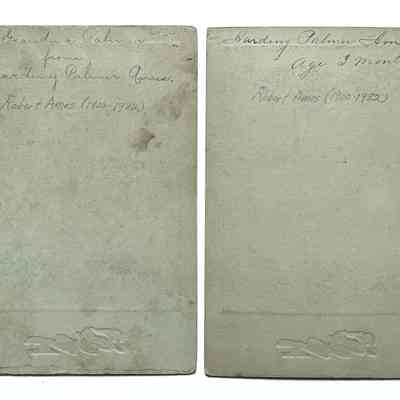 Grandma Palmer
from
Harding Palmer Ames.
Robert Ames (1900-1982)
Harding Palmer
Age 3 Mont
Robert Ames (1900-1982)